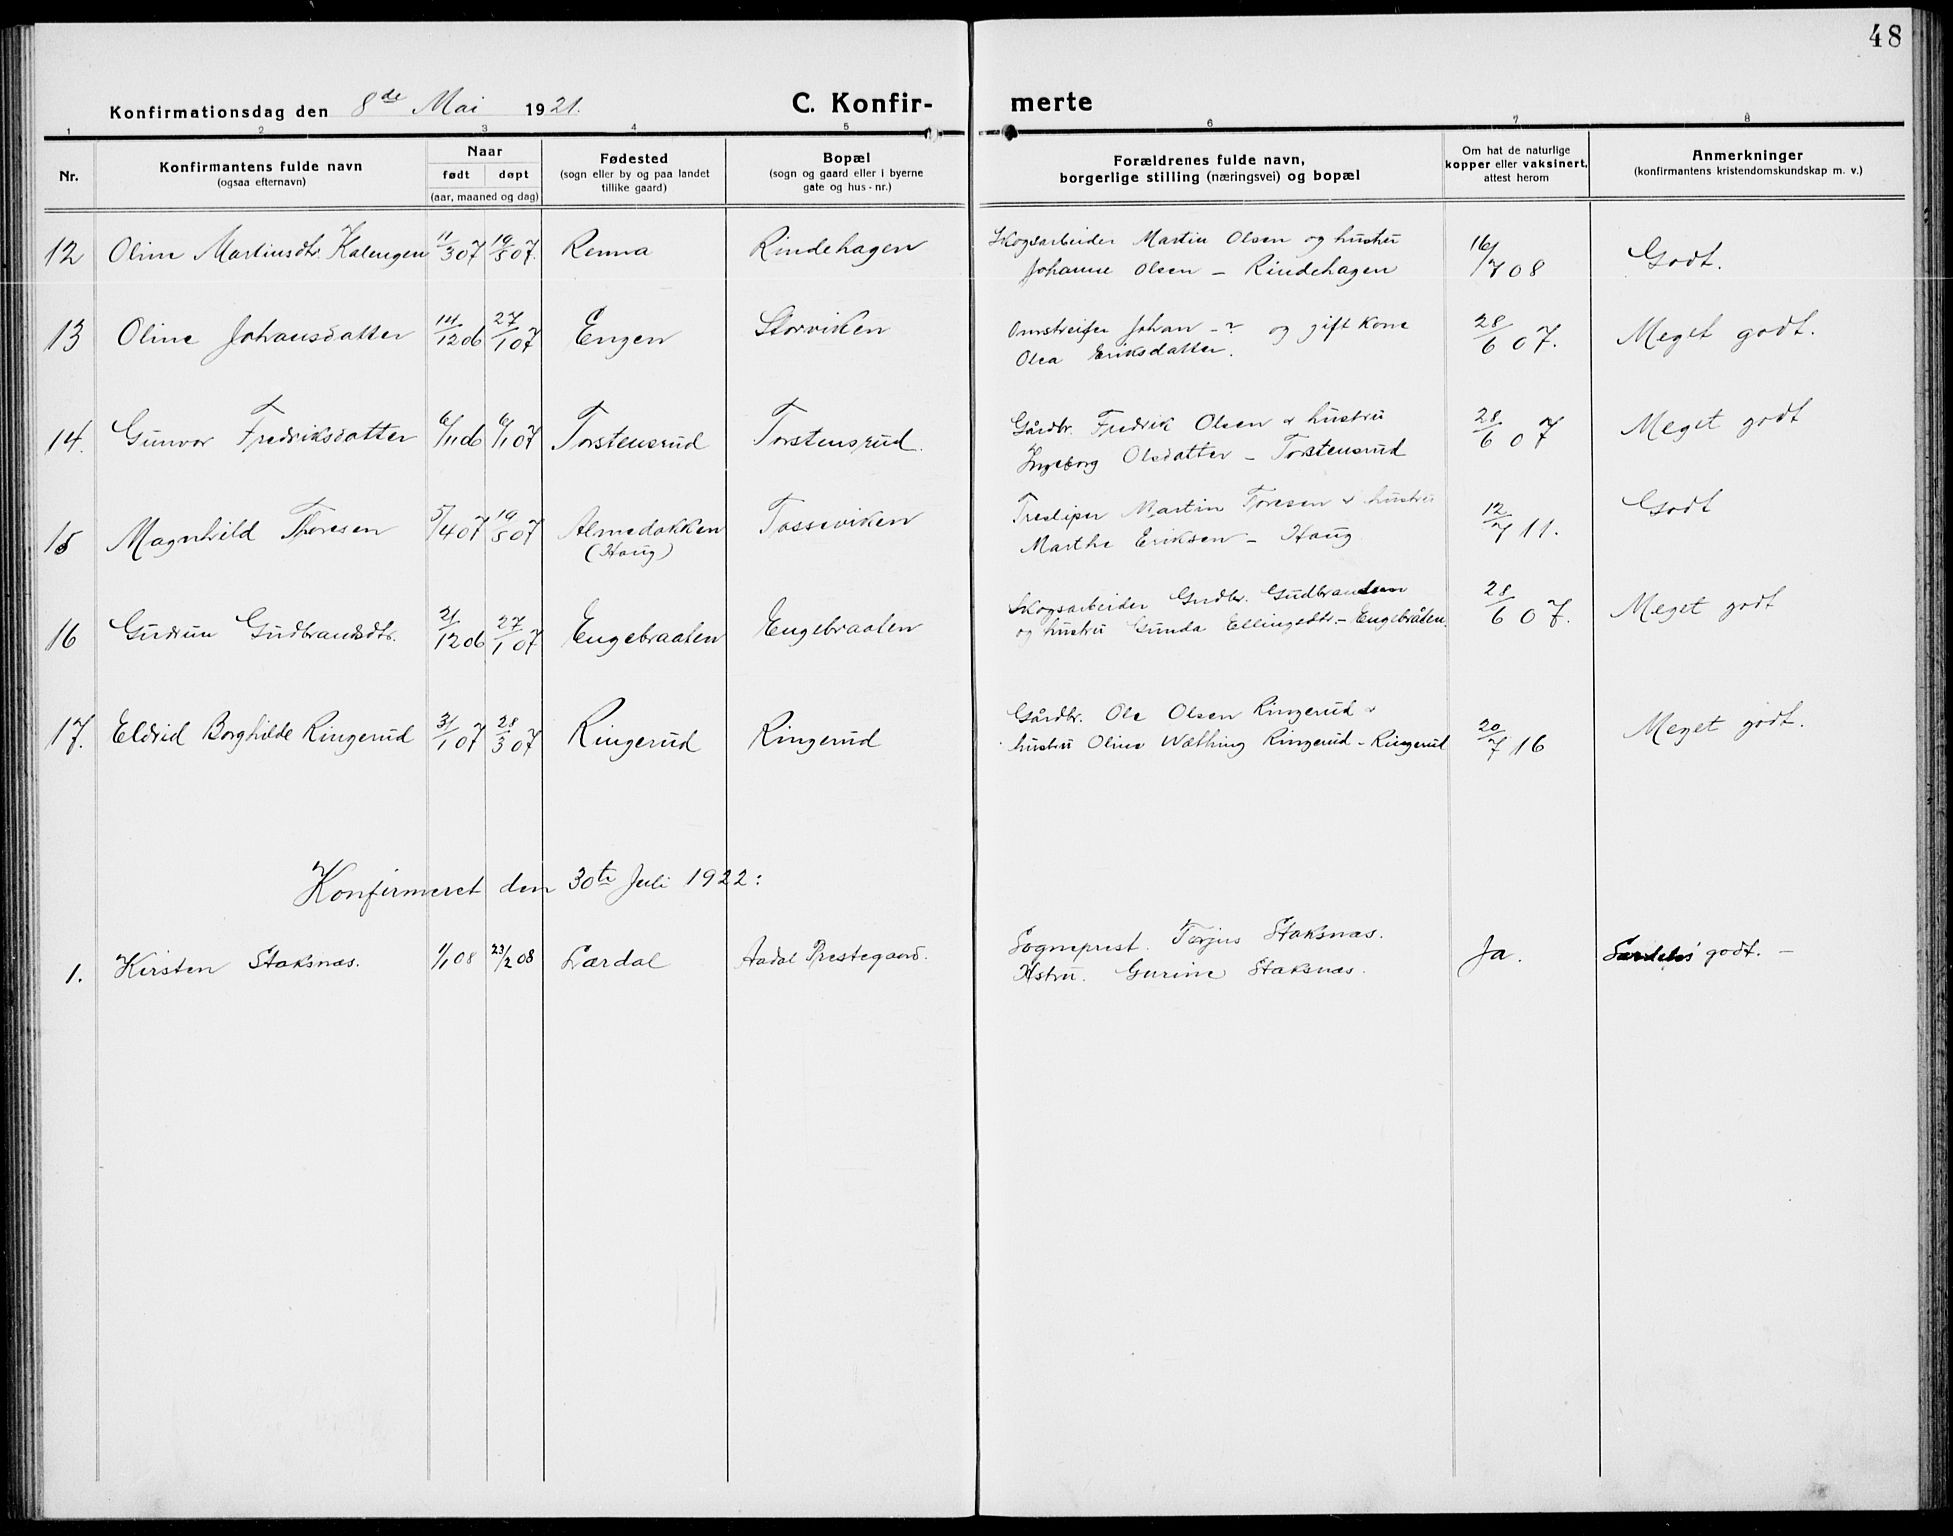 48
Konfirmationsdag den 8de Mai 1921. C. Konfir- merte
1 2 3 4 5 6 7 8
Nr. Konfirmantens fulde navn (ogsaa efternavn) Naar født døpt (aar, maaned og dag) Fødested (sogn eller by og paa landet tillike gaard) Bopæl (sogn og gaard eller i byerne gate og hus-nr.) Forældrenes fulde navn, borgerlige stilling (næringsvei) og bopæl Om hat de naturlige kopper eller vaksinert, attest herom Anmerkninger (konfirmantens kristendomskundskap m. v.)
12 Oline Martinsdtr. Kalengen 11/3 07 19/5 07. Renna Rindehagen Skogsarbeider Martin Olsen og hustru 16/7 08 Godt.
Johanne Olsen – Rindehagen
13 Oline Johansdatter 14/12 06 27/1 07 Engen Storviken Omstreifer Johan – ? og gift kone 28/6 07. Meget godt.
Olea Eriksdatter.
14. Gunvor Fredriksdatter 6/11 06 6/1 07 Torstensrud Torstensrud. Gårdbr. Fredrik Olsen & hustru 28/6 07 Meget godt
Ingeborg Olsdatter – Torstensrud
15 Magnhild Thoresen 5/4 07 19/5 07 Almedokken Tosseviken Tresliper Martin Toresen & hustru 12/7 11. Godt
(Haug) Marthe Eriksen – Haug
16 Gudrun Gudbrandsdtr. 21/12 06 27/1 07 Engebraaten Engebraaten Skogsarbeider Gudbr. Gudbrandsen 28/6 07. Meget godt
og hustru Gunda Ellingsdtr. – Engebråten.
17. Eldrid Borghilde Ringerud 31/1 07 28/3 07 Ringerud Ringerud Gårdbr. Ole Olsen Ringerud & 20/7 16 Meget godt.
hustru Oline Wæthing Ringerud – Ringerud
Konfirmeret den 30te Juli 1922:
1. Kirsten Staksnæs. 1/1 08 23/2 08 Lærdal Aadal Prestegaard. Sogneprest. Torjus Staksnæs. Ja. Særdeles godt. –
Hstru. Gurine Staksnæs.